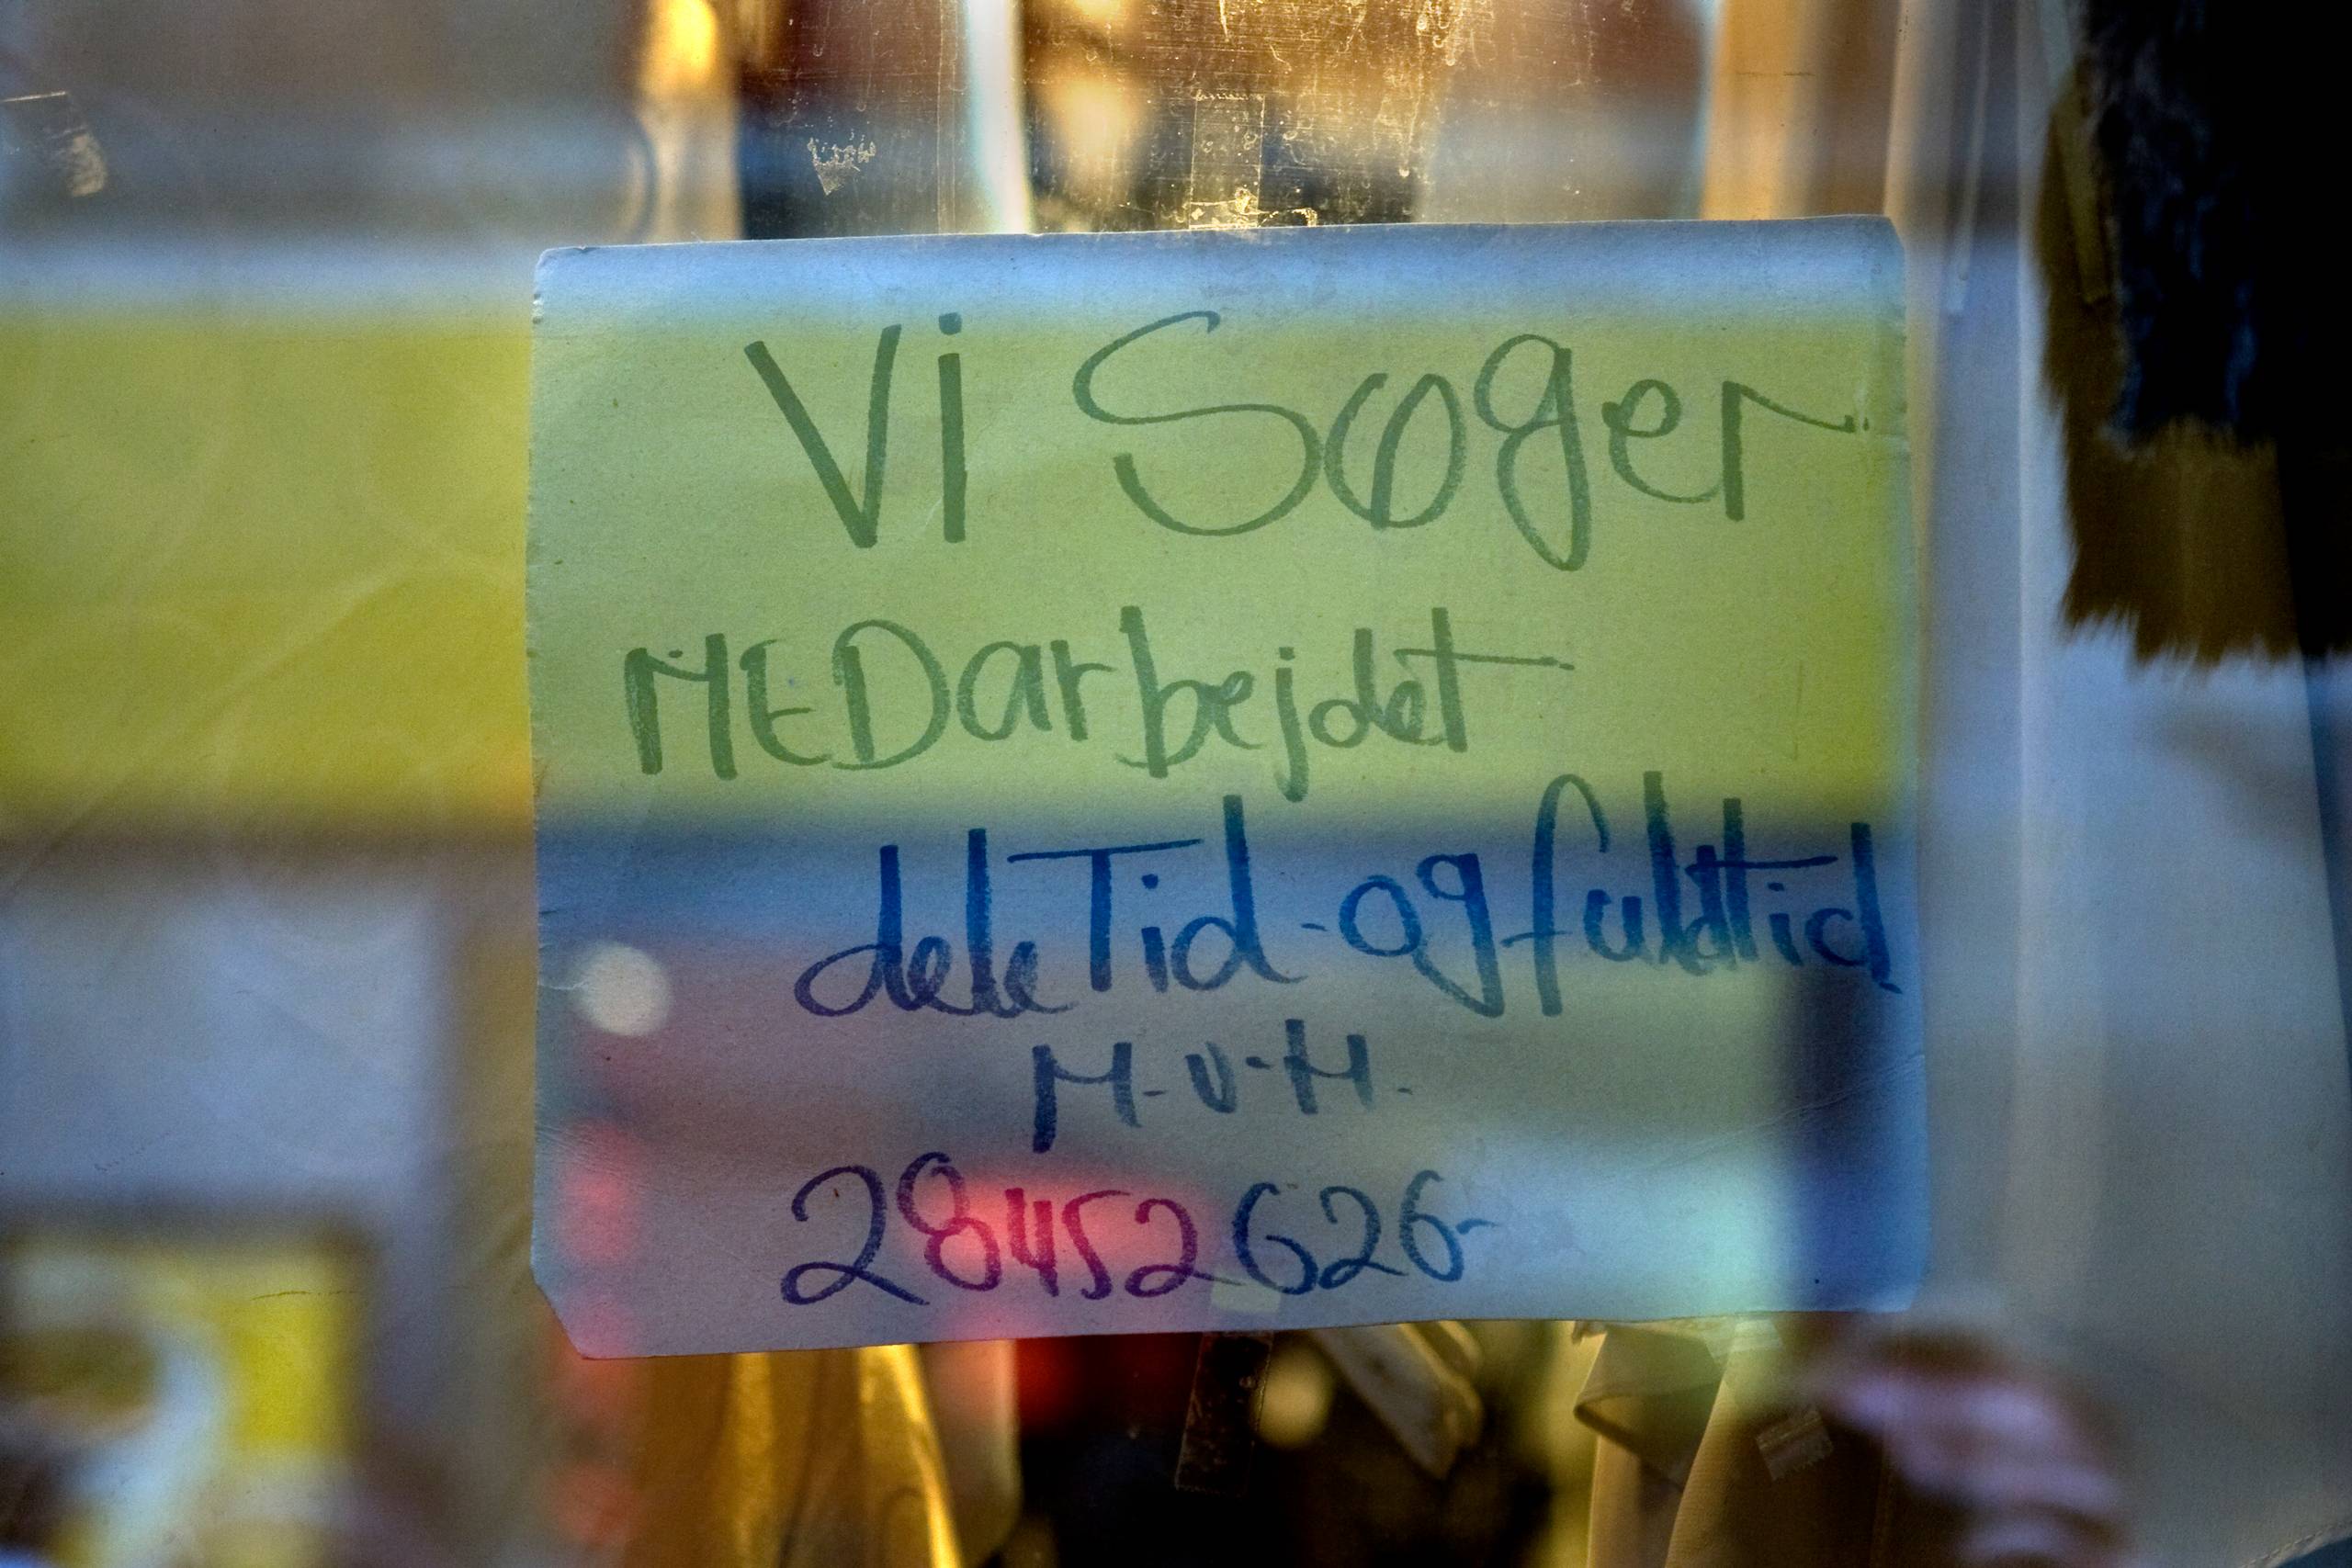 Vi Søger
MEDarbejdet
deleTid-og fuldtid
M.V.H.
28452626-